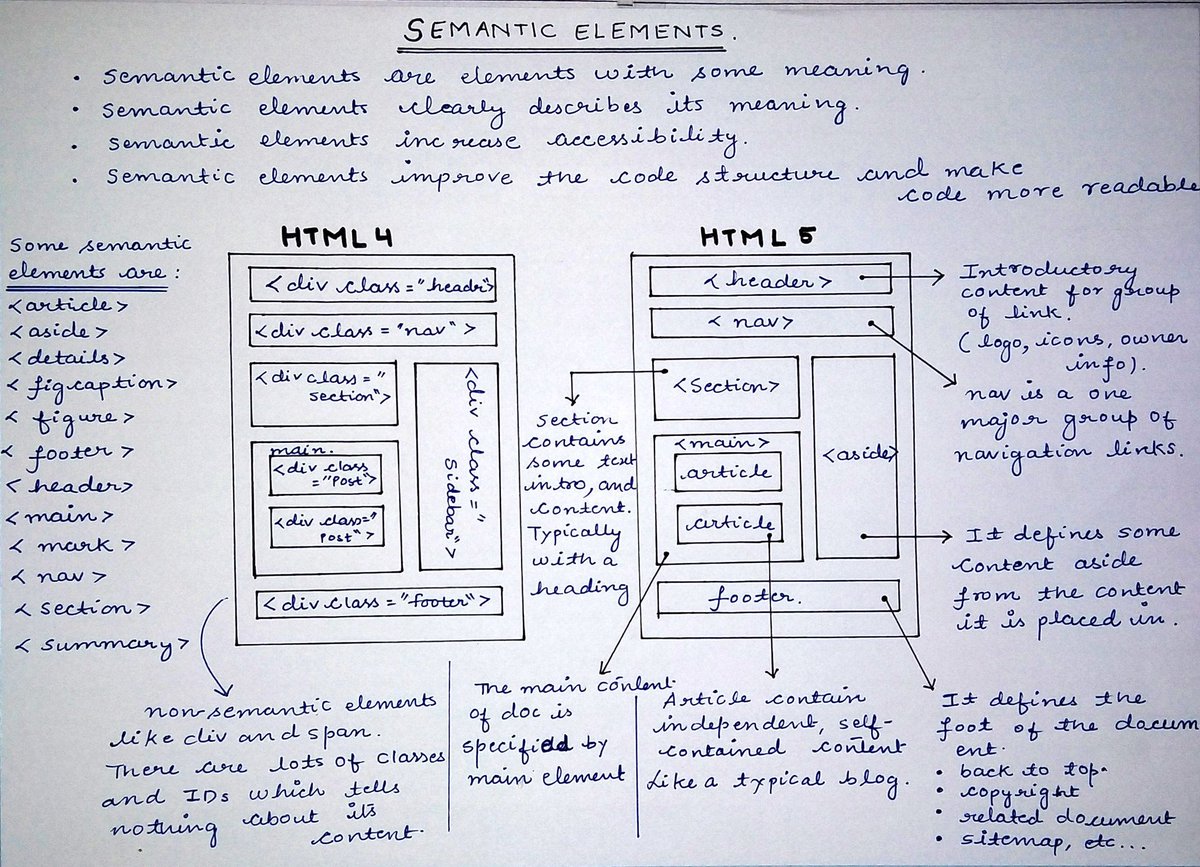 SEMANTIC ELEMENTS.
• Semantic elements are elements with some meaning.
• Semantic elements clearly describes its meaning.
• Semantic elements increase accessibility.
• Semantic elements improve the code structure and make
code more readable
Some semantic
elements are :
<article>
<aside>
<details>
<figcaption>
<figure>
<footer>
<header>
<main>
<mark>
<nav>
<section>
<summary>
HTML 4
<div class="headr">
<div class="nav">
<div class="
section">
main.
<div class
="Post">
<div class="
Post">
<div class="
Sidebar">
<div class="footer">
non-semantic elements
like div and span.
There are lots of classes
and IDs which tells
nothing about its
content.
Section
contains
some text
intro, and
content.
Typically
with a
heading
HTML 5
<header>
<nav>
<Section>
<main>
article
article
<aside>
footer.
Introductory
content for group
of link.
(logo, icons, owner
info).
nav is a one
major group of
navigation links.
It defines some
content aside
from the content
it is placed in.
The main content
of doc is
specified by
main element
Article contain
independent, self-
contained content
Like a typical blog.
It defines the
foot of the docum
ent.
• back to top.
• copyright
• related document
• sitemap, etc...